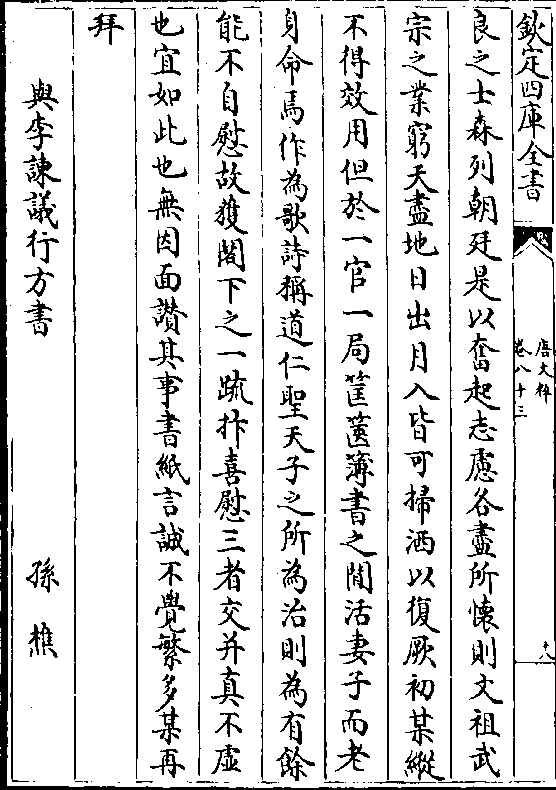 欽定四庫全書
唐文粹
卷八十三
十八
良之士森列朝廷是以奮起志慮各盡所懷則文祖武
宗之業窮天盡地日出月入皆可掃洒以復厥初某縱
不得效用但於一官一局筐篋簿書之間活妻子而老
身命焉作為歌詩稱道仁聖天子之所為治則為有餘
能不自慰故獲閣下之一疏抃喜慰三者交并真不虛
也宜如此也無因面讃其事書紙言誠不覺繁多某再
拜
與李諫議行方書
孫樵